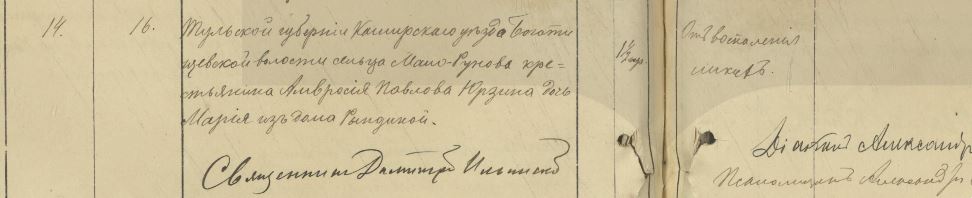 14. 16. Тульской губерніи Каширскаго уѣзда Богати
щевской волости сельца Мало-Рунова кре=
стьянина Амвросія Павлова Юрзина дочь
Марія изъ дома Рындиной.
Священник Димитрій Ильинскій
1½ мр.
Отъ воспаленія
кишекъ.
Діаконъ Александр
Псаломщикъ Александр